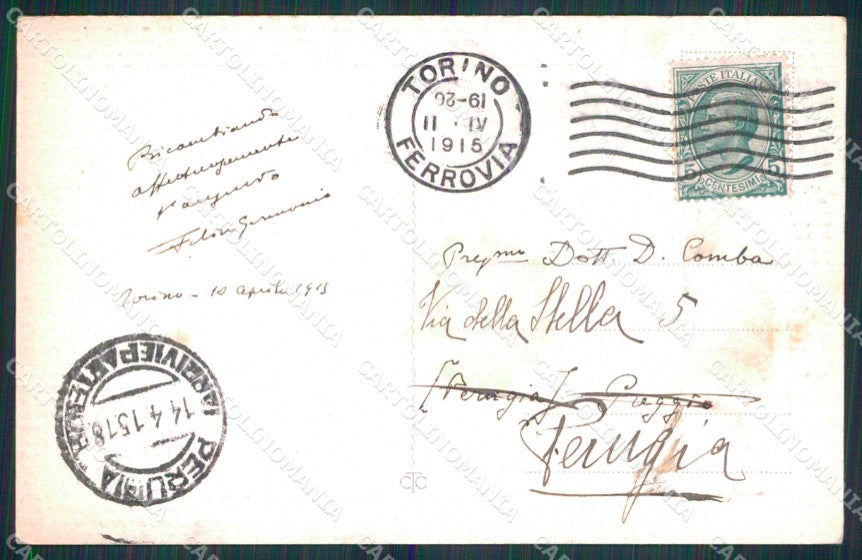 TORINO
19-20
11 · IV
1915
FERROVIA
POSTE ITALIANE
5 CENTESIMI 5
Ricambiando
affettuosamente
l'augurio
Torino - 10 aprile 1915
Pregmo Dott. D. Comba
Via della Stella 5
(Perugia) Poggio
Perugia
PERUGIA
(ARRIVI E PARTENZE)
14.4.15 18
CARTOLINOMANIA